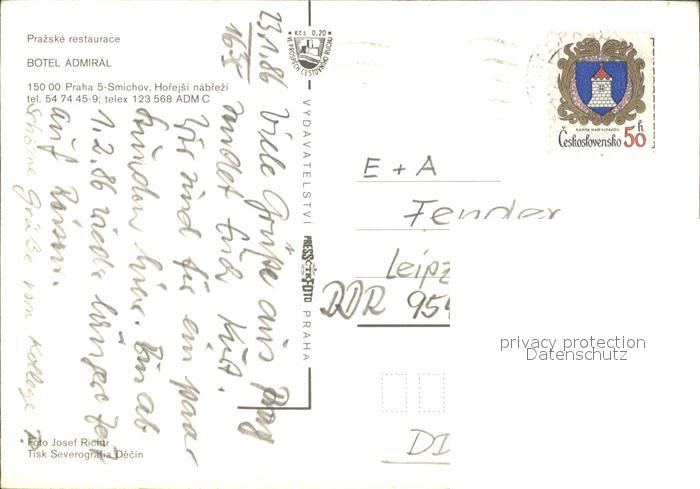 Pražské restaurace
BOTEL ADMIRÁL
150 00 Praha 5-Smíchov, Hořejší nábřeží
tel. 54 74 45-9; telex 123 568 ADM C
23.1.86
Viele Grüße aus Prag
sendet Euch Kurt.
Wir sind für ein paar
Stunden hier. Bin ab
1.2.86 wieder längere Zeit
auf Reisen.
Schöne Grüße von Kollege
Foto Josef Richtr
Tisk Severografia Děčín
Kčs 0,20
VE PROSPĚCH CESTOVNÍHO RUCHU
VYDAVATELSTVÍ PRESSFOTO PRAHA
ČTK
KAMÝK NAD VLTAVOU
Československo 50 h
E + A
Fender
Leipz
DDR 954
DD
privacy protection
Datenschutz